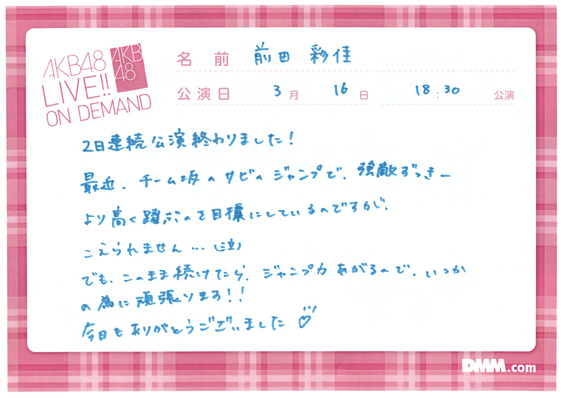 AKB48
LIVE!!
ON DEMAND
AKB
48
名前 前田 彩佳
公演日 3月 16日 18:30 公演
2日連続公演終わりました!
最近、チーム坂のサビのジャンプで、強敵ずっきー
より高く踊ぶのを目標にしているのですが、
こえられません…(泣)
でも、このまま続けたら、ジャンプ力あがるので、いつか
の為に頑張ります!!
今日もありがとうございました♡
DMM.com